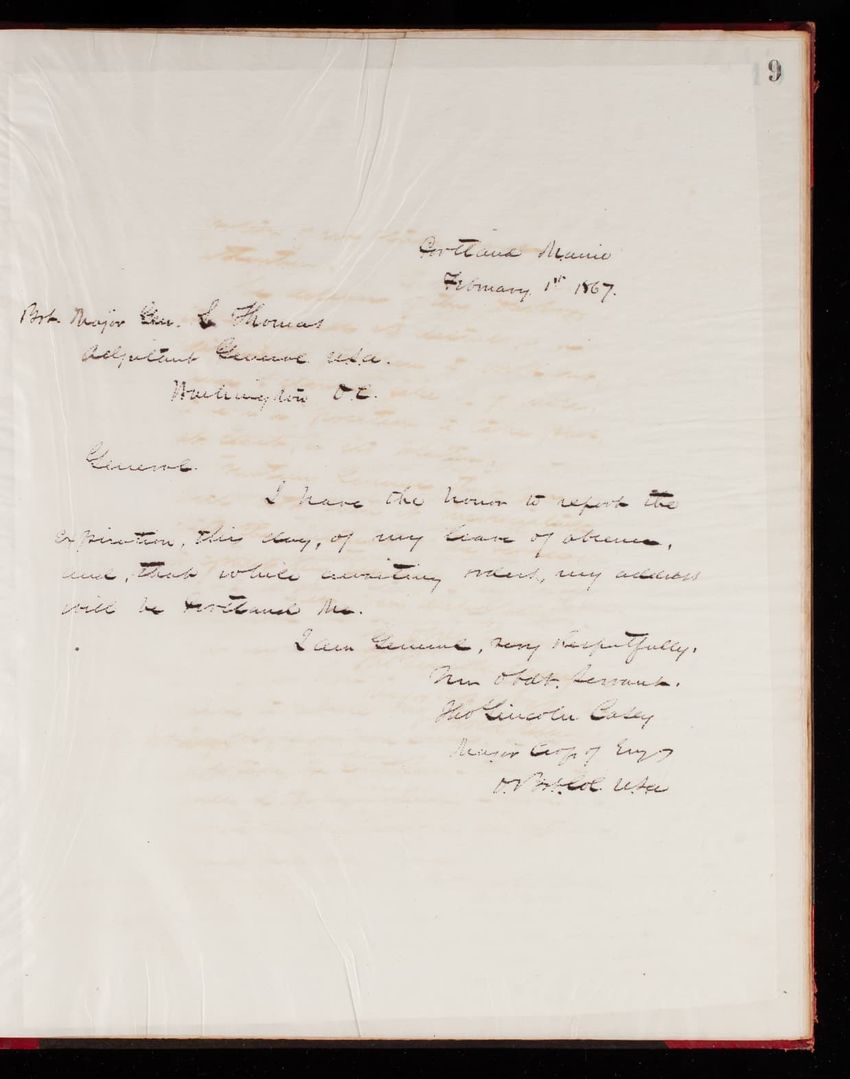 9
Portland Maine
February 1st 1867.
Bvt. Major Gen. L Thomas
Adjutant General USA.
Washington D.C.
General.
I have the honor to report the
expiration, this day, of my leave of absence,
and, that while awaiting orders, my address
will be Portland Me.
I am General, very respectfully.
Your Obdt. Servant.
Tho Lincoln Casey
Major Corps of Engs
& Bvt. Col. USA